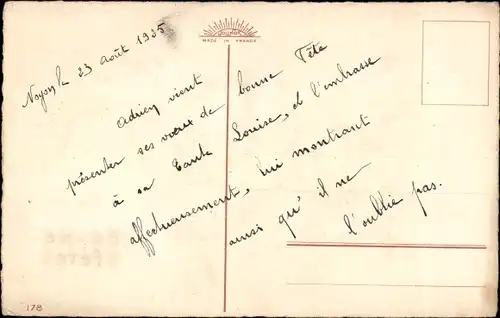 MADE IN FRANCE
Noyon le 23 Août 1925
Adrien vient
présenter ses voeux de bonne Fête
à sa Tante Louise, et l'embrasse
affectueusement, lui montrant
ainsi qu'il ne
l'oublie pas.
178